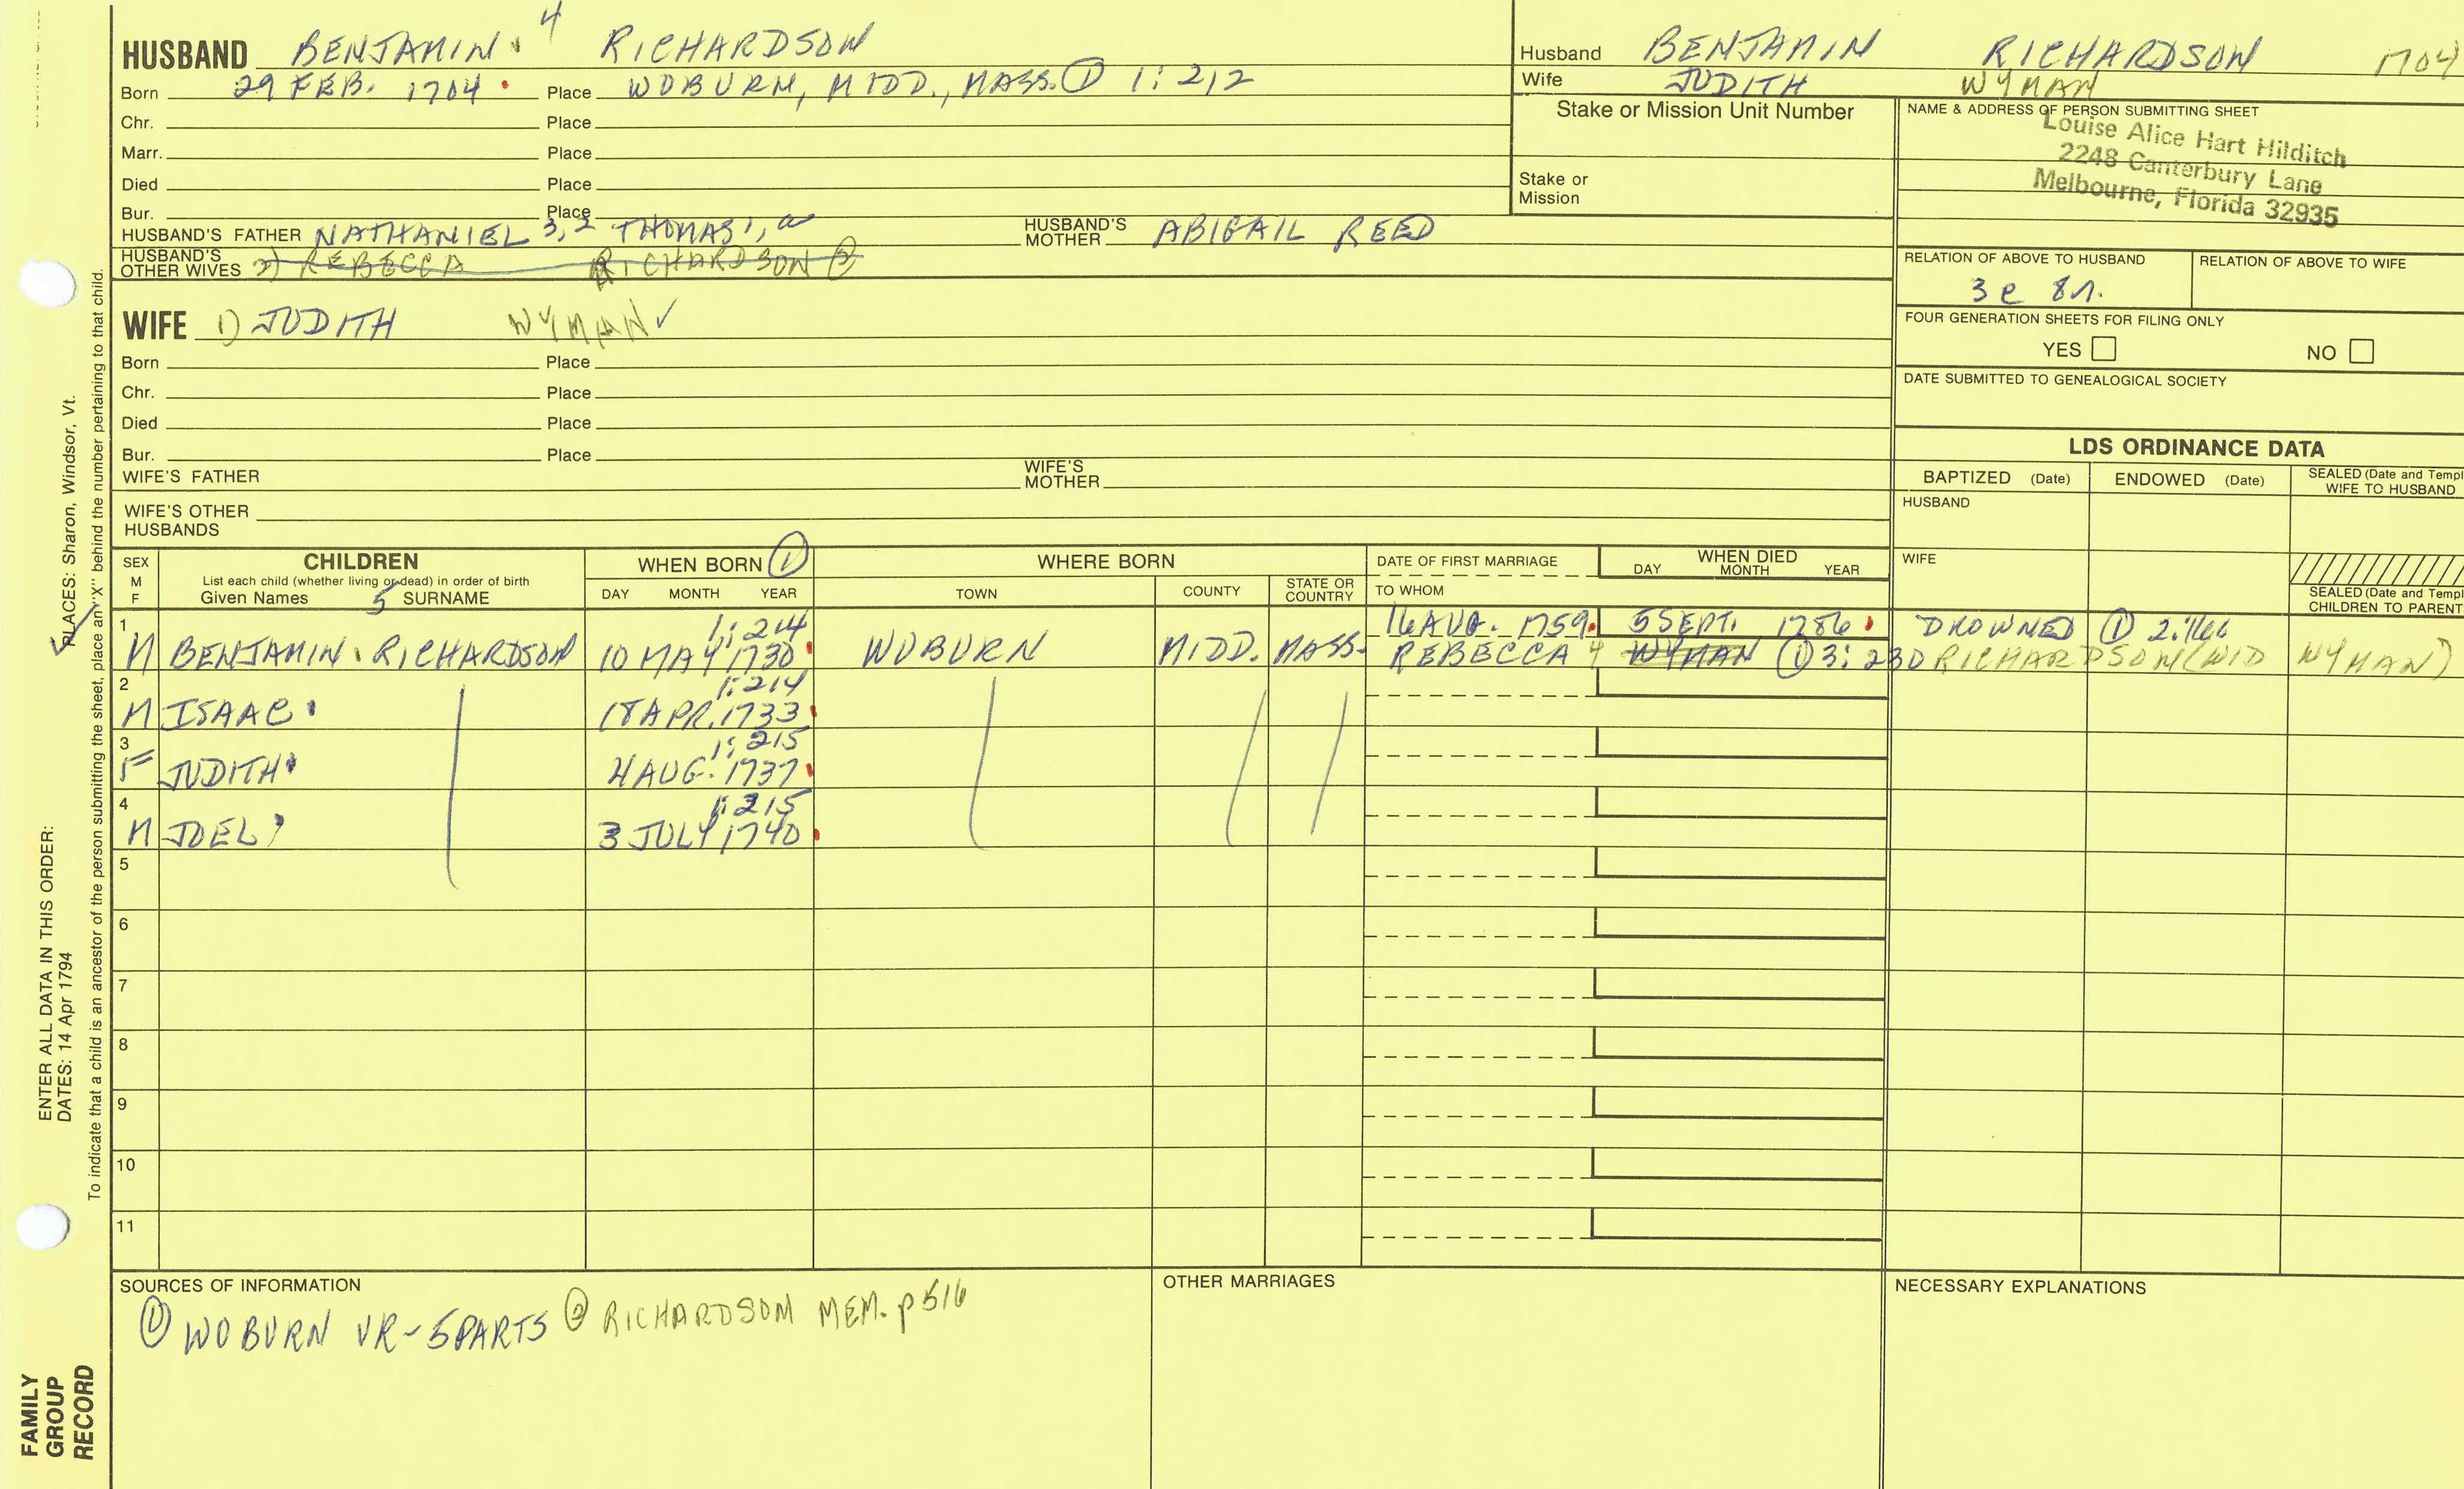 HUSBAND BENJAMIN 4 RICHARDSON
Born 29 FEB. 1704 Place WOBURN, MIDD., MASS. ① 1:212
Chr. Place
Marr. Place
Died Place
Bur. Place
HUSBAND'S FATHER NATHANIEL 3,2 THOMAS 1, a HUSBAND'S MOTHER ABIGAIL REED
HUSBAND'S OTHER WIVES 2) REBECCA RICHARDSON ②
WIFE 1) JUDITH WYMAN ✓
Born Place
Chr. Place
Died Place
Bur. Place
WIFE'S FATHER WIFE'S MOTHER
WIFE'S OTHER HUSBANDS
Husband BENJAMIN RICHARDSON 1704
Wife JUDITH WYMAN
Stake or Mission Unit Number
Stake or Mission
NAME & ADDRESS OF PERSON SUBMITTING SHEET
Louise Alice Hart Hilditch
2248 Canterbury Lane
Melbourne, Florida 32935
RELATION OF ABOVE TO HUSBAND RELATION OF ABOVE TO WIFE
3c 8r.
FOUR GENERATION SHEETS FOR FILING ONLY
YES NO
DATE SUBMITTED TO GENEALOGICAL SOCIETY
LDS ORDINANCE DATA
BAPTIZED (Date) ENDOWED (Date) SEALED (Date and Templ
WIFE TO HUSBAND
HUSBAND
WIFE
SEALED (Date and Templ
CHILDREN TO PARENT
SEX M F CHILDREN WHEN BORN ① WHERE BORN DATE OF FIRST MARRIAGE WHEN DIED
List each child (whether living or dead) in order of birth DAY MONTH YEAR
Given Names 5 SURNAME DAY MONTH YEAR TOWN COUNTY STATE OR COUNTRY TO WHOM
1 1:214 16 AUG. 1759 5 SEPT. 1786 DROWNED ① 2:166
M BENJAMIN RICHARDSON 10 MAY 1730 WOBURN MIDD. MASS. REBECCA 4 WYMAN ① 3:230 RICHARDSON (WID WYMAN)
2 1:214
M ISAAC 18 APR. 1733
3 1:215
F JUDITH 4 AUG. 1737
4 1:215
M JOEL 3 JULY 1740
5
6
7
8
9
10
11
SOURCES OF INFORMATION OTHER MARRIAGES NECESSARY EXPLANATIONS
① WOBURN VR-5 PARTS ② RICHARDSON MEM. p516
ENTER ALL DATA IN THIS ORDER:
DATES: 14 Apr 1794
PLACES: Sharon, Windsor, Vt.
To indicate that a child is an ancestor of the person submitting the sheet, place an "X" behind the number pertaining to that child.
FAMILY
GROUP
RECORD